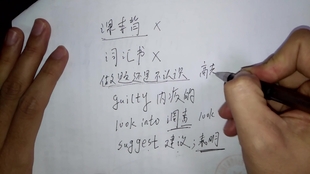 课本背 ×
词汇书 ×
做题还是不认识 高考
guilty 内疚的
look into 调查 look
suggest 建议；表明